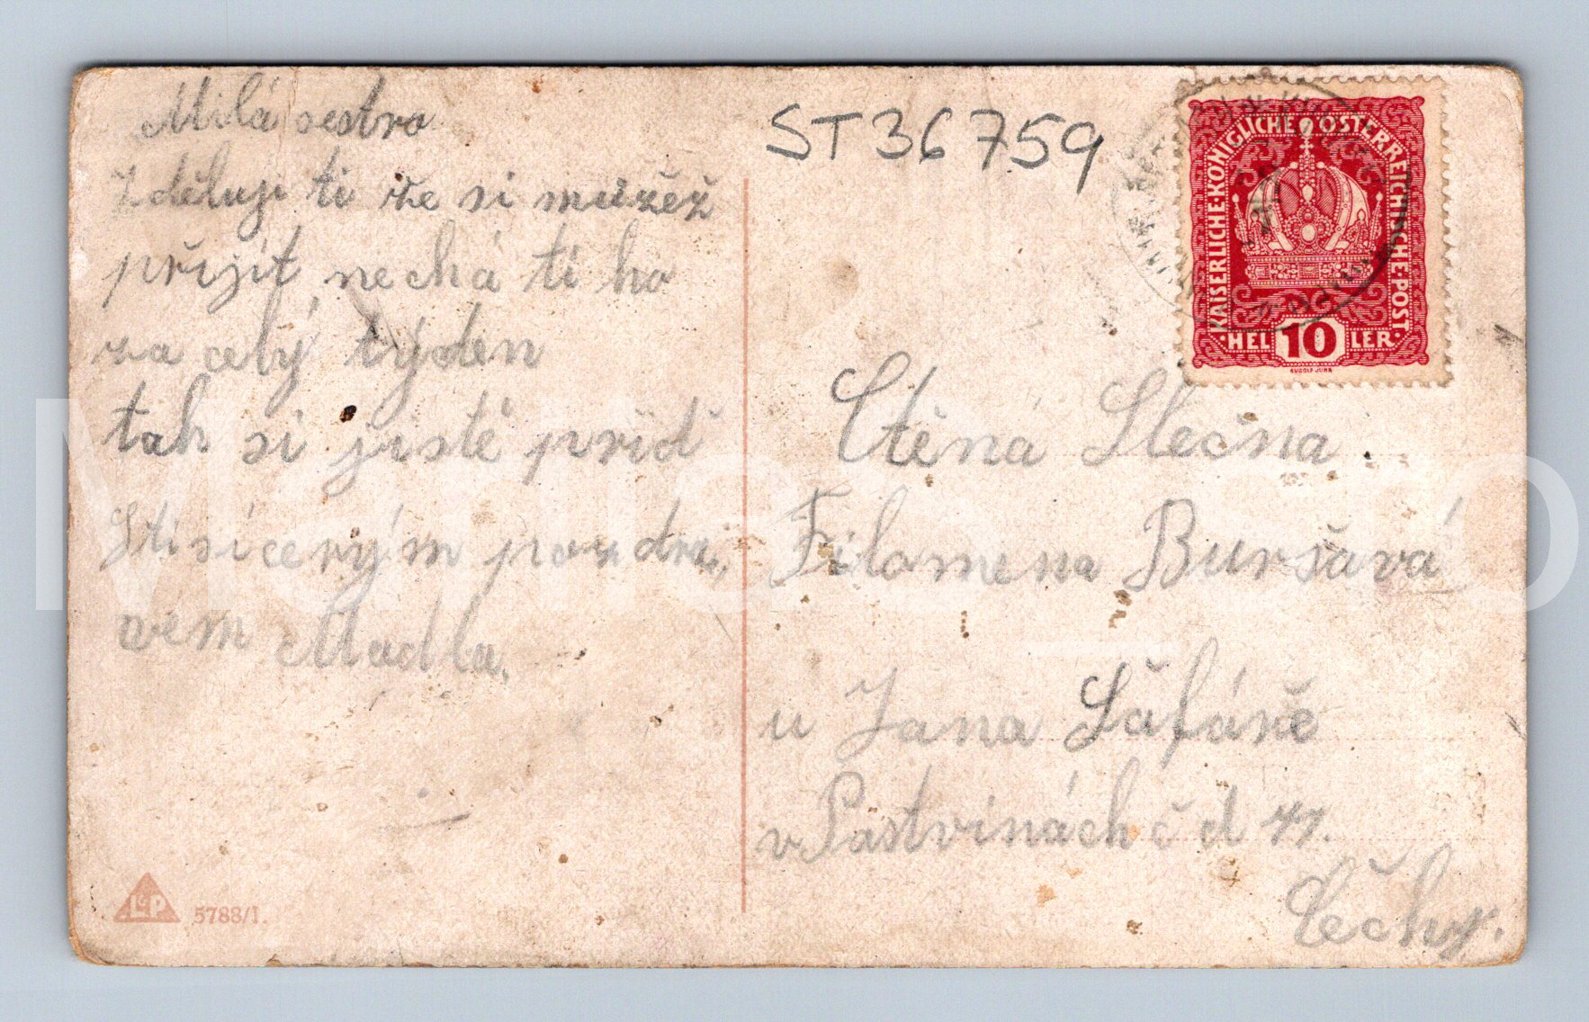 Milá sestro
Zděluji ti že si můžéž
přijít nechá ti ho
za celý týden
tak si jistě přiď
Stisíceným pozdra,
vem Madla.
ST36759
KAISERLICHE·KÖNIGLICHE ÖSTERREICHISCHE·POST·
·HEL 10 LER·
RUDOLF JUNK
Ctěná Slečna
Filomena Buršavá
u Jana Šafáře
v Pastvinách č d 47.
Čechy.
L&P 5788/I.